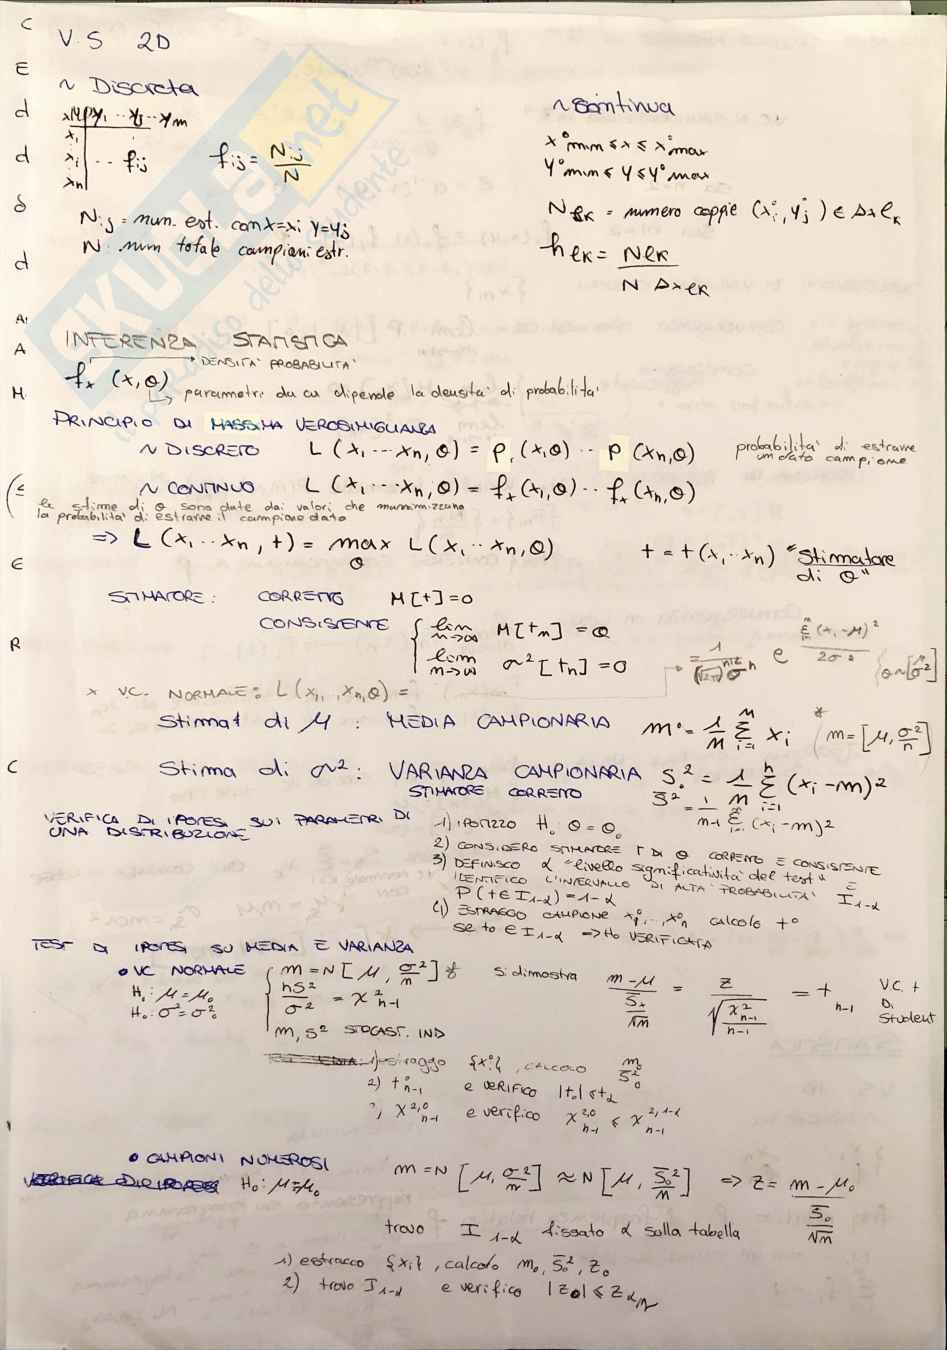 V.S 2D
~ Discreta
y1 ·· yj ·· ym
x1
xi ·· fij
xn
fij = Nij / N
Nij = num. est. con x=xi y=yj
N num totale campioni estr.
~ continua
x°min ≤ x ≤ x°max
y°min ≤ y ≤ y°max
Nek = numero coppie (x°i, y°j) ∈ Δxek
hek = Nek / N Δxek
INFERENZA STATISTICA
DENSITA' PROBABILITA'
fx (x, θ)
parametri da cu dipende la densita' di probabilita'
PRINCIPIO DI MASSIMA VEROSIMIGLIANZA
~ DISCRETO L (x1 ··· xn, θ) = P1 (x1θ) ·· P (xnθ) probabilita' di estrarre un dato campione
~ CONTINUO L (x1 ··· xn, θ) = fx (x1, θ) ·· fx (xn, θ)
le stime di θ sono date dai valori che massimizzano
la probabilita' di estrarre il campione dato
=> L (x1 ·· xn, t) = max θ L (x1 ·· xn, θ) t = t (x1 ·· xn) "Stimatore di θ"
STIMATORE: CORRETTO M [t] = 0
CONSISTENTE { lim n→∞ M [tn] = θ
lim n→∞ σ² [tn] = 0
= 1 / (√2π)^n/2 σ^n e Σ (xi - μ)² / 2σ² { θ ~ [μ σ²]
* V.C. NORMALE: L (x1, , xn, θ) =
Stimat di μ : MEDIA CAMPIONARIA m° = 1/n Σ i=1 xi * ( m = [μ, σ²/n]
Stima di σ² : VARIANZA CAMPIONARIA S°² = 1/n Σ i=1 n (xi - m)²
STIMATORE CORRETTO S̄°² = 1/n-1 Σ i=1 (xi - m)²
VERIFICA DI IPOTESI SUI PARAMETRI DI
UNA DISTRIBUZIONE
1) IPOTIZZO H0: θ = θ0
2) CONSIDERO STIMATORE T DI θ CORRETTO E CONSISTENTE
3) DEFINISCO α "livello significatività del test" E
IDENTIFICO L'INTERVALLO DI ALTA PROBABILITA' I1-α
P (t ∈ I1-α) = 1-α
4) ESTRAGGO CAMPIONE x°1, ··, x°n calcolo t°
se to ∈ I1-α => H0 VERIFICATA
TEST DI IPOTESI SU MEDIA E VARIANZA
• VC NORMALE { m = N [μ, σ²/n] * si dimostra m-μ / S̄*/√n = z / √(χ²n-1 / n-1) = t n-1 V.C. t DI Student
H0: μ = μ0
H0: σ² = σ²0
nS²/σ² = χ²n-1
m, S² STOCAST. IND
1) estraggo {x°i}, CALCOLO m0 S̄²0
2) t°n-1 e VERIFICO |t0| ≤ tα
χ²,0 n-1 e verifico χ²,0 n-1 ≤ χ²,1-α n-1
• CAMPIONI NUMEROSI
H0: μ = μ0
m = N [μ, σ²/n] ≈ N [μ, S̄0²/n] => z = m - μ0 / S̄0/√n
trovo I 1-α fissato α sulla tabella
1) estraceo {xi}, calcolo m0, S̄0², Z0
2) trovo I1-α e verifico |Z0| ≤ Zα/2
C
E
d
d
δ
d
A
A
M
E
R
C
SKUOLA.net